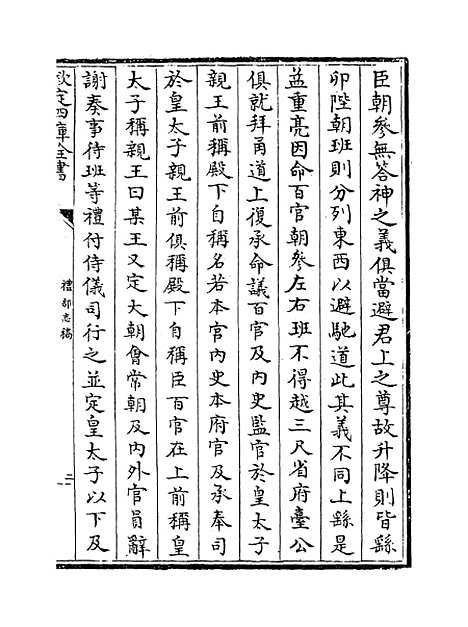 臣朝參無答神之義俱當避君上之尊故升降則皆繇
卯陛朝班則分列東西以避馳道此其義不同上繇是
益重亮因命百官朝參左右班不得越三尺省府臺公
俱就拜甬道上復承命議百官及內史監官於皇太子
親王前稱殿下自稱名若本官內史本府官及承奉司
於皇太子親王前俱稱殿下自稱臣百官在上前稱皇
太子稱親王曰某王又定大朝會常朝及內外官員辭
謝奏事待班等禮付侍儀司行之並定皇太子以下及
欽定四庫全書
禮部志稿